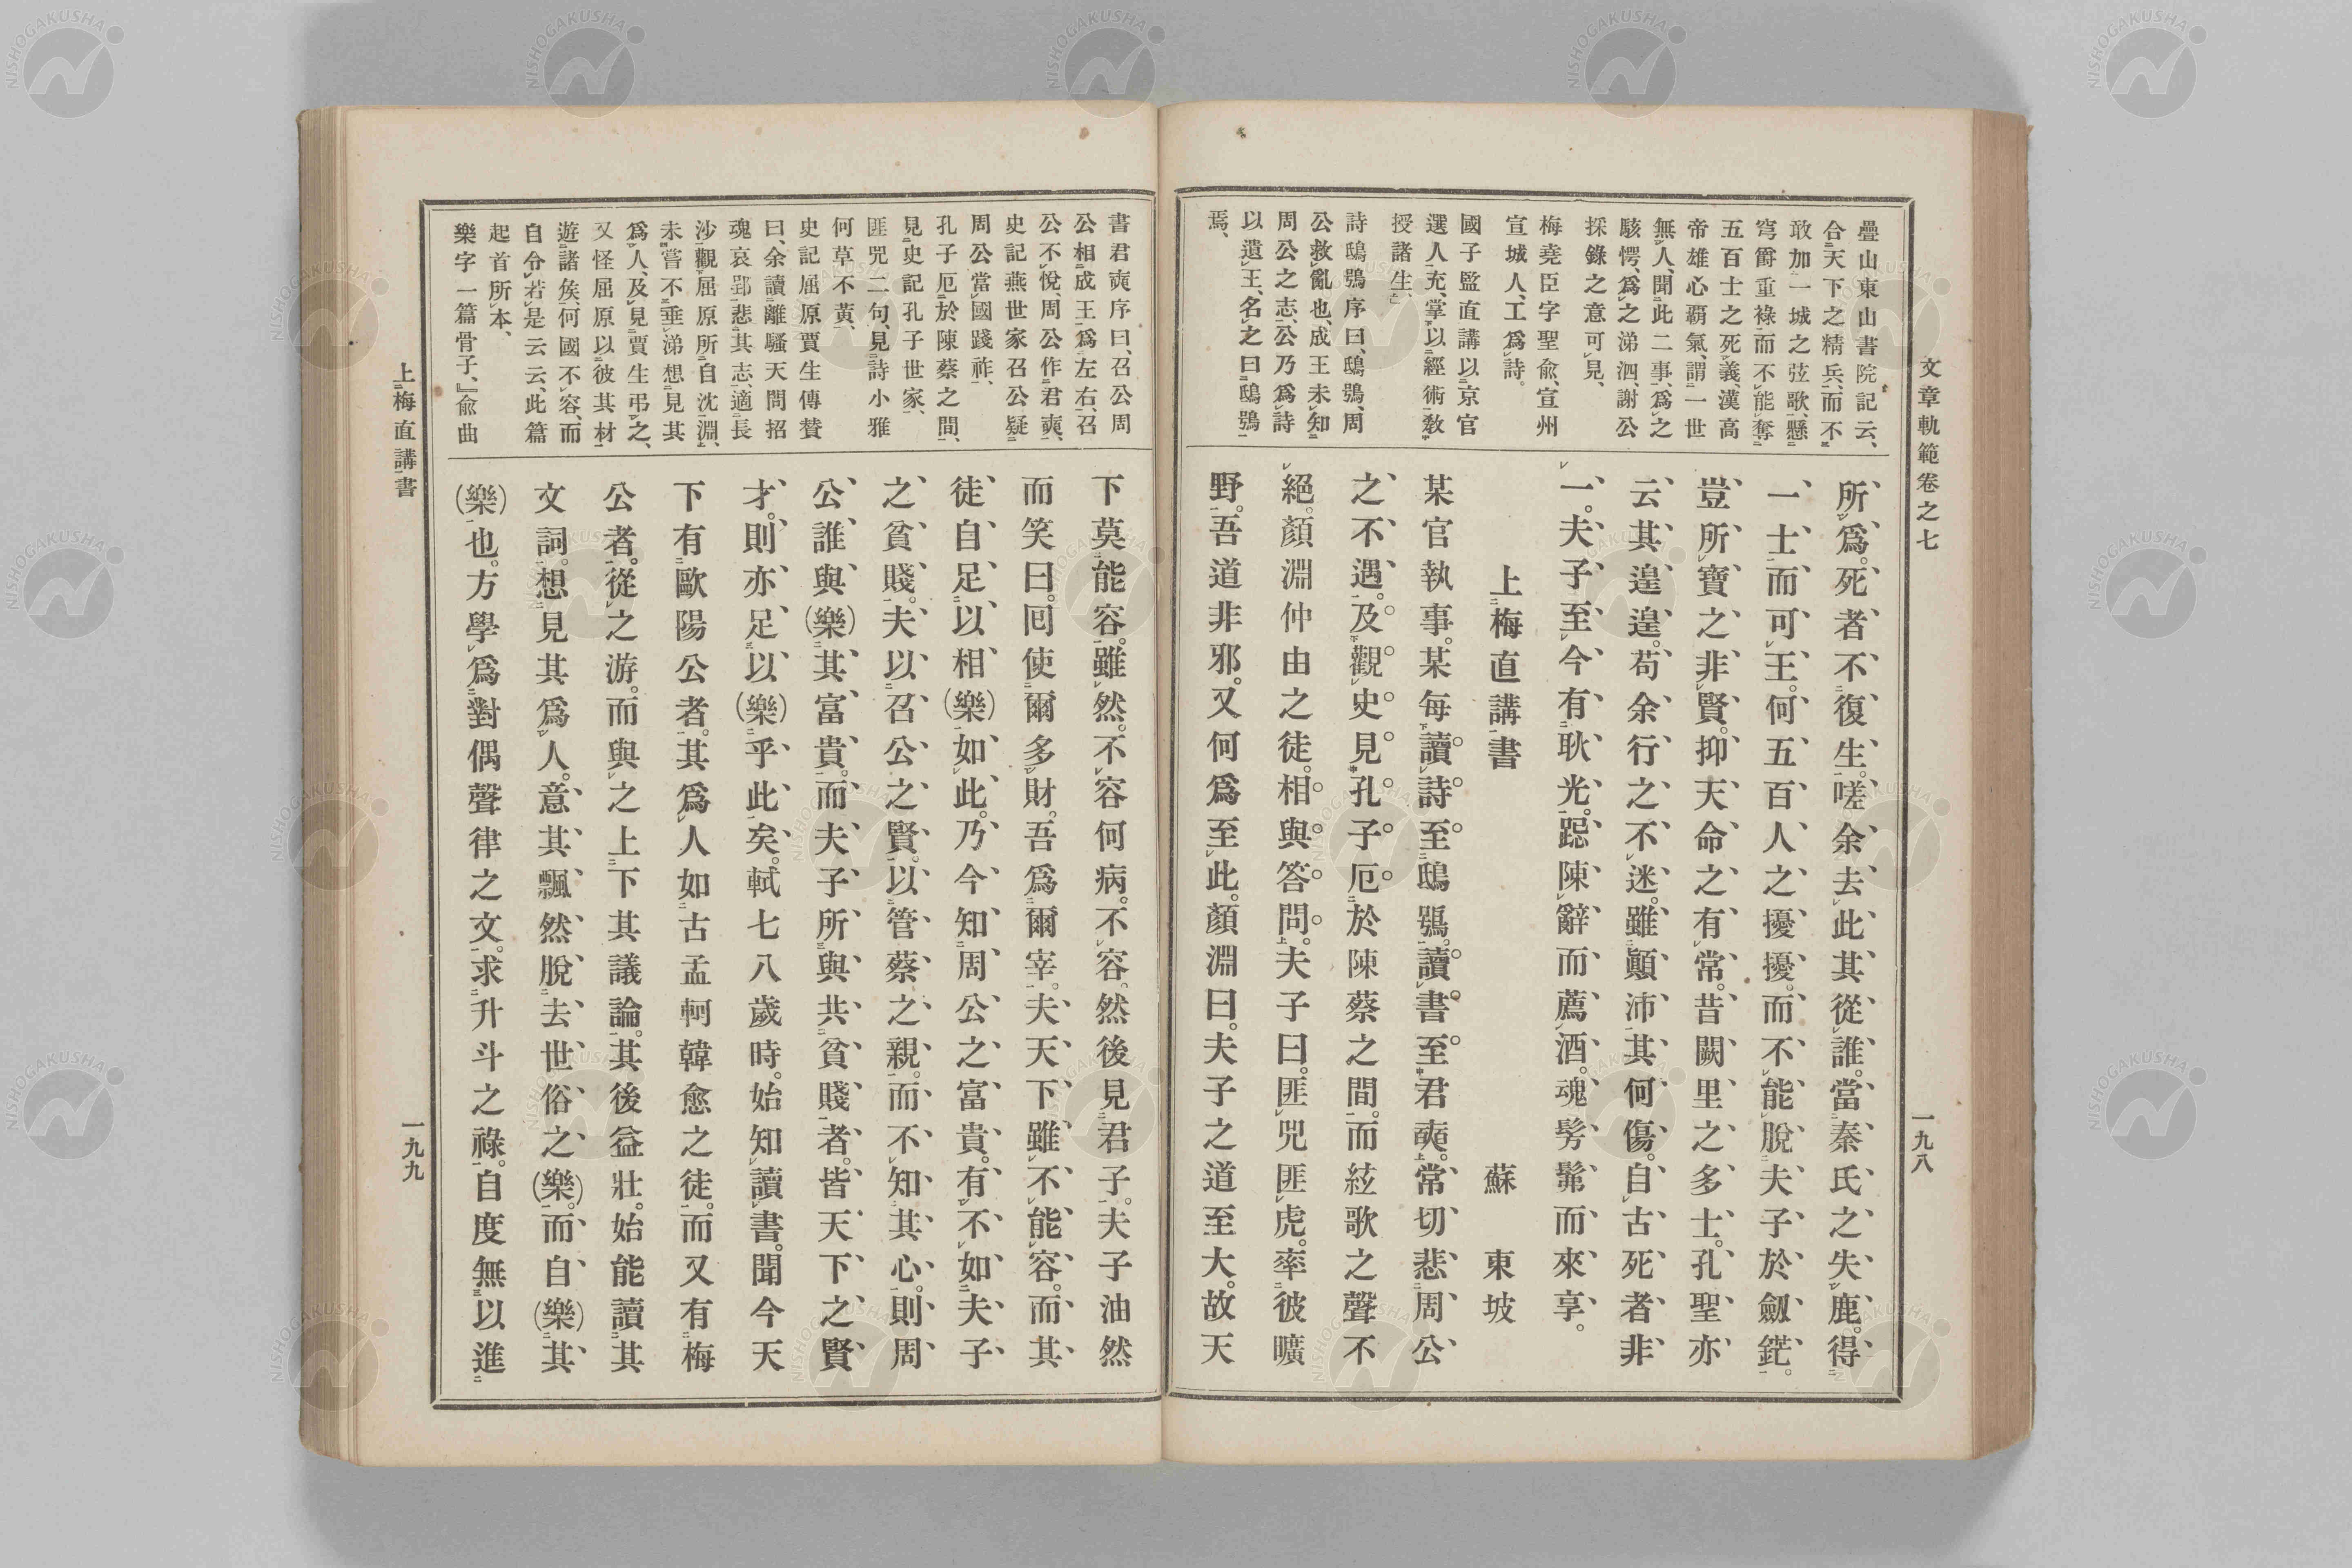 文章軌範卷之七
一九八
疊山東山書院記云、
合天下之精兵、而不
敢加一城之弦歌、懸
穹爵重祿而不能奪
五百士之死義、漢高
帝雄心霸氣、謂一世
無人、聞此二事、爲之
駭愕、爲之涕泗、謝公
採錄之意可見、
梅堯臣字聖兪、宣州
宣城人、工爲詩。
國子監直講以京官
選人充、掌以經術敎
授諸生、
詩鴟鴞序曰、鴟鴞、周
公救亂也、成王未知
周公之志、公乃爲詩
以遺王、名之曰鴟鴞
焉、
所爲。死者不復生。嗟余去此其從誰。當秦氏之失鹿。得
一士而可王。何五百人之擾擾。而不能脫夫子於劔鋩。
豈所寶之非賢。抑天命之有常。昔闕里之多士。孔聖亦
云其遑遑。苟余行之不迷。雖顚沛其何傷。自古死者非
一。夫子至今有耿光。跽陳辭而薦酒。魂髣髴而來享。
上梅直講書
蘇東坡
某官執事。某每讀詩至鴟鴞。讀書至君奭。常切悲周公
之不遇。及觀史見孔子厄於陳蔡之間。而絃歌之聲不
絕。顏淵仲由之徒。相與答問。夫子曰。匪兕匪虎。率彼曠
野。吾道非邪。又何爲至此。顏淵曰。夫子之道至大。故天
書君奭序曰、召公周
公相成王爲左右、召
公不悅、周公作君奭、
史記燕世家召公疑
周公當國踐祚、
孔子厄於陳蔡之間、
見史記孔子世家、
匪兕二句、見詩小雅
何草不黃、
史記屈原賈生傳贊
曰、余讀離騷天問招
魂哀郢、悲其志、適長
沙觀屈原所自沈淵、
未嘗不垂涕想見其
爲人、及見賈生弔之、
又怪屈原以彼其材
遊諸侯、何國不容、而
自令若是云云、此篇
起首所本、
樂字一篇骨子、』兪曲
下莫能容。雖然。不容何病。不容。然後見君子。夫子油然
而笑曰。囘使爾多財。吾爲爾宰。夫天下雖不能容。而其
徒自足以相(樂)如此。乃今知周公之富貴。有不如夫子
之貧賤。夫以召公之賢。以管蔡之親。而不知其心。則周
公誰與(樂)其富貴。而夫子所與共貧賤者。皆天下之賢
才。則亦足以(樂)乎此矣。軾七八歲時。始知讀書。聞今天
下有歐陽公者。其爲人如古孟軻韓愈之徒。而又有梅
公者。從之游。而與之上下其議論。其後益壯。始能讀其
文詞。想見其爲人。意其飄然脫去世俗之(樂)。而自(樂)其
(樂)也。方學爲對偶聲律之文。求升斗之祿。自度無以進
上梅直講書
一九九